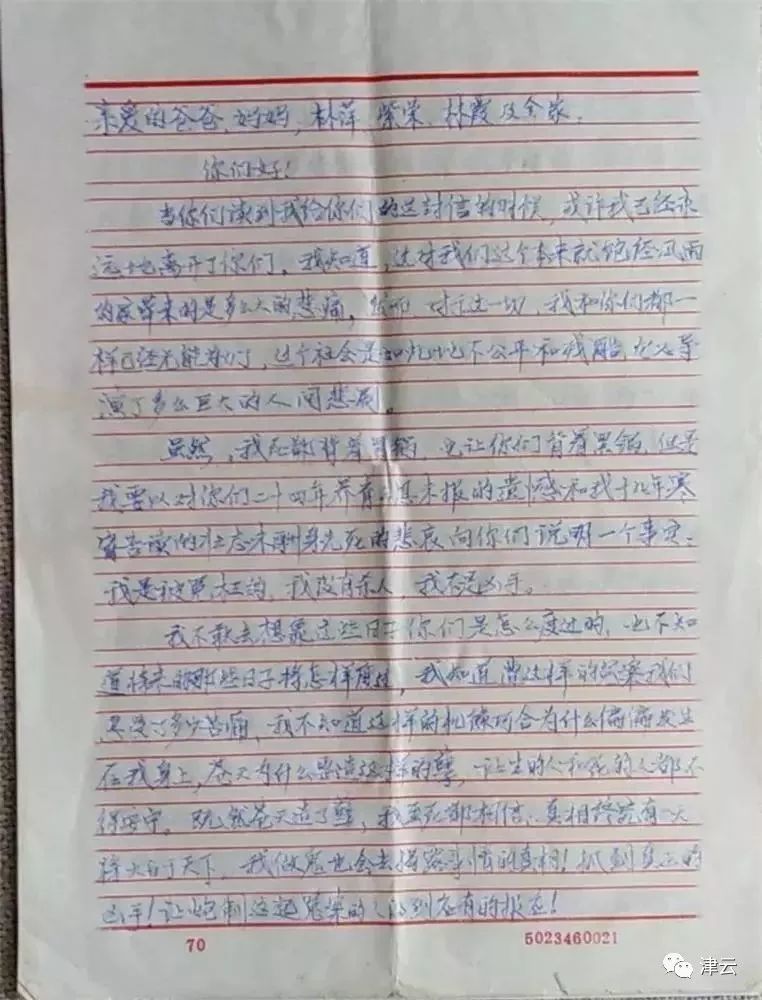 亲爱的爸爸、妈妈，林萍、紫荣、林霞及全家，
你们好！
当你们读到我给你们的这封信的时候，或许我已经永
远地离开了你们。我知道，这对我们这个本来就饱经风雨
的家带来的是多么大的悲痛。然而，对于这一切，我和你们都一
样已经无能为力了，这个社会是如此地不公平和残酷，
演了多么巨大的人间悲剧。
虽然，我死都背着黑锅，也让你们背着黑锅，但是
我要以对你们二十四年养育之恩未报的遗憾和我十九年寒
窗苦读的壮志未酬身先死的悲哀向你们说明一个事实：
我是被冤枉的，我没有杀人，我不是凶手。
我不敢去想象这些日子你们是怎么度过的，也不知
道将来的那些日子将怎样度过，我知道曾这样的冤案我们
忍受了多少苦痛，我不知道这样的机缘巧合为什么偏偏发生
在我身上，苍天为什么要造这样的孽，让生的人和死的人都不
得安宁。既然苍天造了孽，我至死都相信，真相终究有一天
将大白于天下，我做鬼也会去揭露事情的真相！抓到真正的
凶手！让炮制这起冤案的人得到应有的报应！
70
5023460021
津云